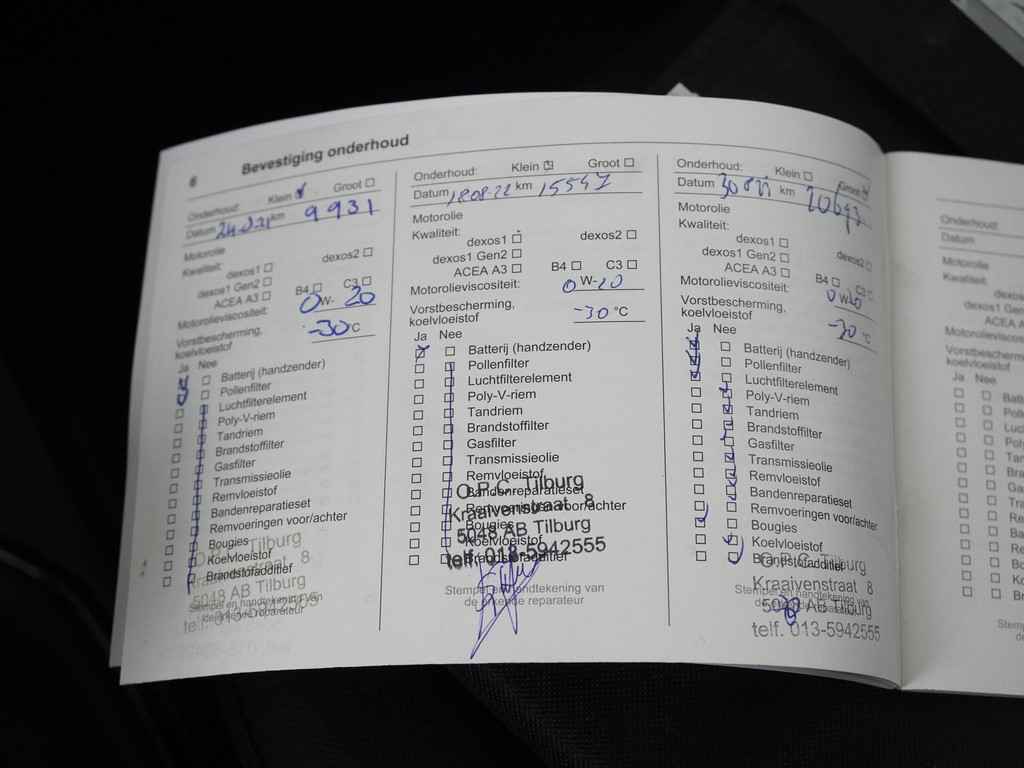 6 Bevestiging onderhoud
Onderhoud: Klein Groot
Datum km 9931
Motorolie
Kwaliteit:
dexos1 dexos2
dexos1 Gen2
ACEA A3 B4 C3
Motorolieviscositeit: 0 W- 20
Vorstbescherming,
koelvloeistof -30 °C
Ja Nee
Batterij (handzender)
Pollenfilter
Luchtfilterelement
Poly-V-riem
Tandriem
Brandstoffilter
Gasfilter
Transmissieolie
Remvloeistof
Bandenreparatieset
Remvoeringen voor/achter
Bougies
Koelvloeistof
Brandstofadditief
O.P.C. Tilburg
Kraaivenstraat 8
5048 AB Tilburg
Stempel en handtekening van
de erkende reparateur
Onderhoud: Klein Groot
Datum 18.08.22 km 15547
Motorolie
Kwaliteit:
dexos1 dexos2
dexos1 Gen2
ACEA A3 B4 C3
Motorolieviscositeit: 0 W-20
Vorstbescherming,
koelvloeistof -30 °C
Ja Nee
Batterij (handzender)
Pollenfilter
Luchtfilterelement
Poly-V-riem
Tandriem
Brandstoffilter
Gasfilter
Transmissieolie
Remvloeistof
Bandenreparatieset
Remvoeringen voor/achter
Bougies
Koelvloeistof
Brandstofadditief
O.P.C. Tilburg
Kraaivenstraat 8
5048 AB Tilburg
telf. 013-5942555
Stempel en handtekening van
de erkende reparateur
Onderhoud: Klein Groot
Datum km
Motorolie
Kwaliteit:
dexos1 dexos2
dexos1 Gen2
ACEA A3 B4 C3
Motorolieviscositeit: 0 W-20
Vorstbescherming,
koelvloeistof °C
Ja Nee
Batterij (handzender)
Pollenfilter
Luchtfilterelement
Poly-V-riem
Tandriem
Brandstoffilter
Gasfilter
Transmissieolie
Remvloeistof
Bandenreparatieset
Remvoeringen voor/achter
Bougies
Koelvloeistof
Brandstofadditief
O.P.C. Tilburg
Kraaivenstraat 8
5048 AB Tilburg
telf. 013-5942555
Stempel en handtekening van
Onderhoud:
Datum
Motorolie
Kwaliteit:
dexos1
dexos1 Gen
ACEA A
Motorolieviscosit
Vorstbescherming
koelvloeistof
Ja Nee